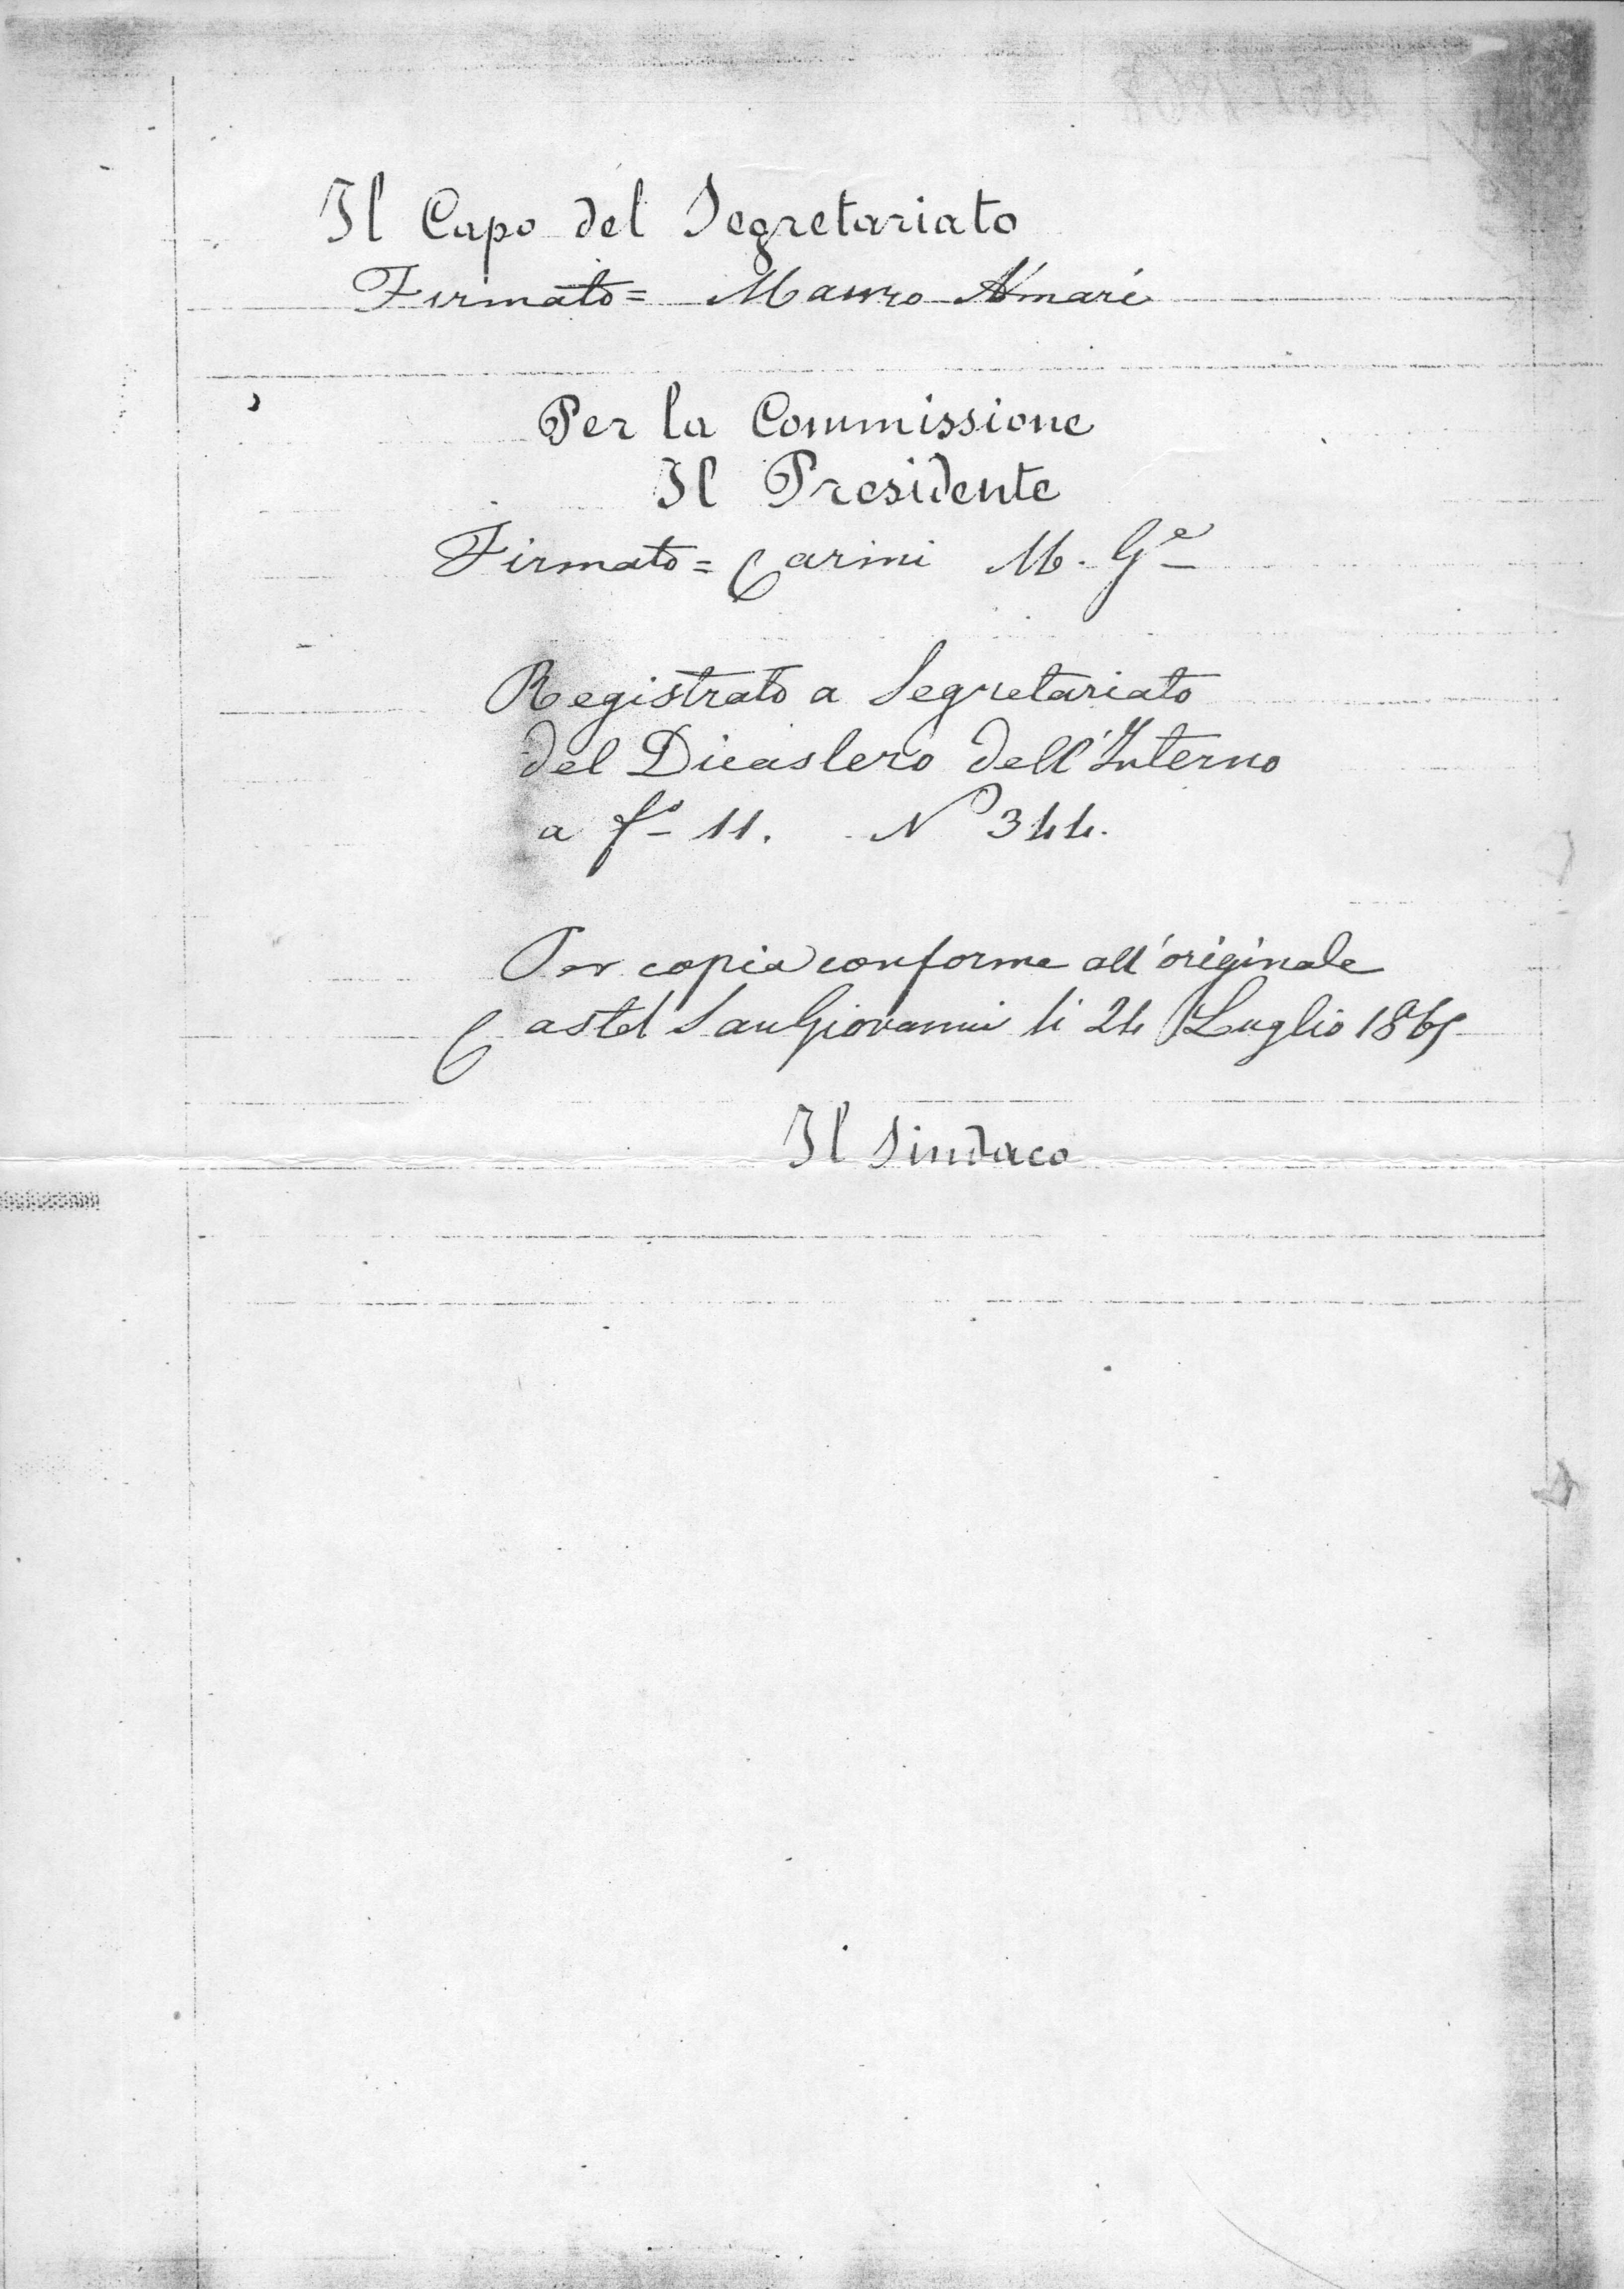 Il Capo del Segretariato
Firmato = Mauro Amari
Per la Commissione
Il Presidente
Firmato = Carini M. Gᵉ
Registrato a Segretariato
del Dicastero dell'Interno
a fº 11. Nº 344.
Per copia conforme all'originale
Castel San Giovanni li 24 Luglio 1865
Il Sindaco